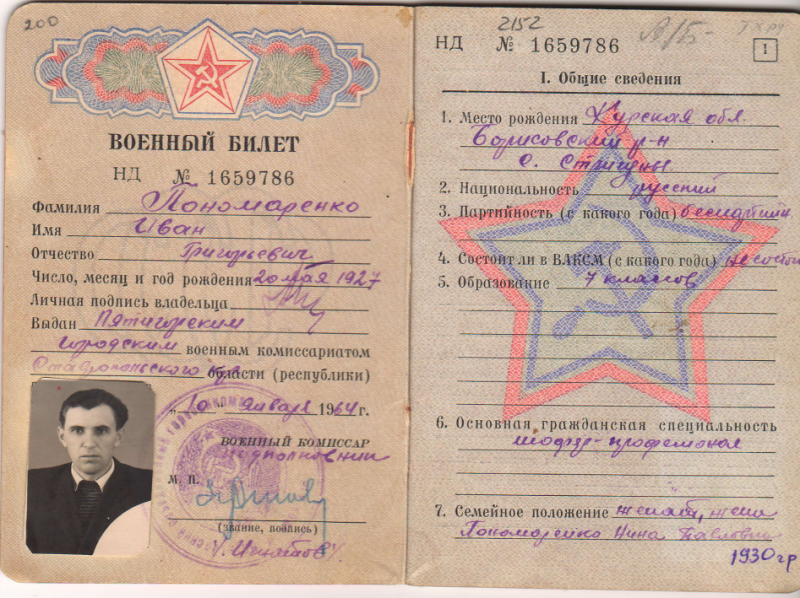 200
ВОЕННЫЙ БИЛЕТ
НД № 1659786
Фамилия Пономаренко
Имя Иван
Отчество Григорьевич
Число, месяц и год рождения 20 мая 1927
Личная подпись владельца
Выдан Пятигорским
городским военным комиссариатом
Ставропольского края области (республики)
„10 января 1964 г.
ВОЕННЫЙ КОМИССАР
подполковник
М. П.
(звание, подпись)
2152
НД № 1659786
1
I. Общие сведения
1. Место рождения Курская обл.
Борисовский р-н
с. Стригуны
2. Национальность русский
3. Партийность (с какого года)
4. Состоит ли в ВЛКСМ (с какого года) не состоит
5. Образование 7 классов
6. Основная гражданская специальность
шофер-профессионал
7. Семейное положение женат, жена
Пономаренко Нина Павловна
1930 г р